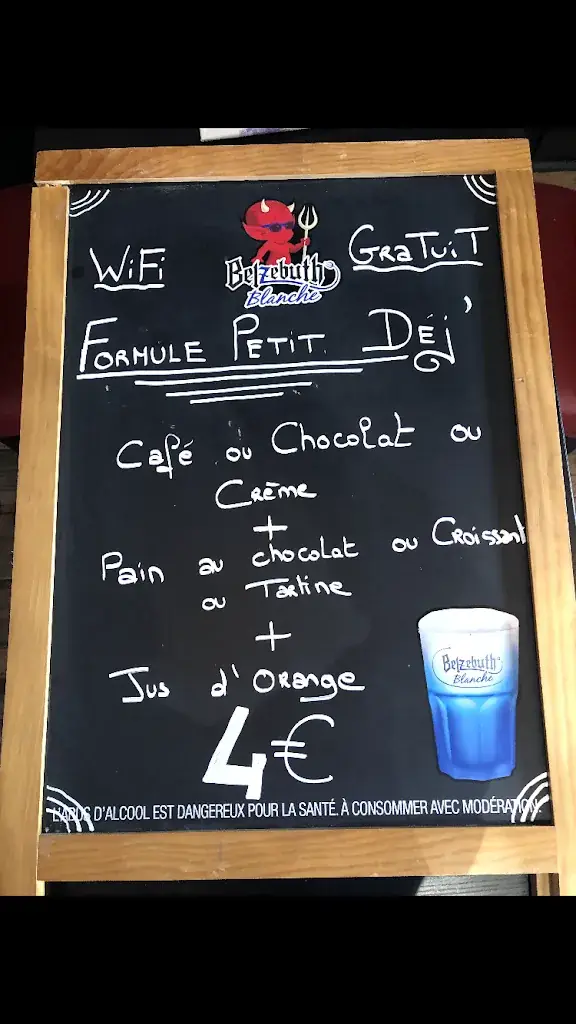 WiFi
GRaTuiT
Belzebuth
Blanche
FORMULE PETIT DÉJ'
Café ou Chocolat ou
CRème
+
Pain au chocolat ou CRoissant
ou Tartine
+
Jus d'ORange
4€
Belzebuth
Blanche
L'ABUS D'ALCOOL EST DANGEREUX POUR LA SANTÉ. À CONSOMMER AVEC MODÉRATION.